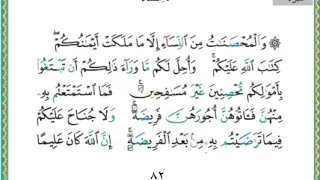 ۞ وَالْمُحْصَنَٰتُ مِنَ النِّسَآءِ إِلَّا مَا مَلَكَتْ أَيْمَٰنُكُمْ ۖ
كِتَٰبَ اللَّهِ عَلَيْكُمْ ۚ وَأُحِلَّ لَكُم مَّا وَرَآءَ ذَٰلِكُمْ أَن تَبْتَغُوا۟
بِأَمْوَٰلِكُم مُّحْصِنِينَ غَيْرَ مُسَٰفِحِينَ ۚ فَمَا اسْتَمْتَعْتُم بِهِۦ
مِنْهُنَّ فَـَٔاتُوهُنَّ أُجُورَهُنَّ فَرِيضَةً ۚ وَلَا جُنَاحَ عَلَيْكُمْ
فِيمَا تَرَٰضَيْتُم بِهِۦ مِنۢ بَعْدِ الْفَرِيضَةِ ۚ إِنَّ اللَّهَ كَانَ عَلِيمًا
٨٢